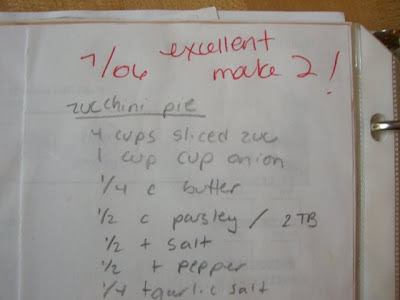 7/06 excellent
make 2!
zucchini pie
4 cups sliced zuc
1 cup cup onion
1/4 c butter
1/2 c parsley / 2TB
1/2 t salt
1/2 t pepper
1/4 t garlic salt